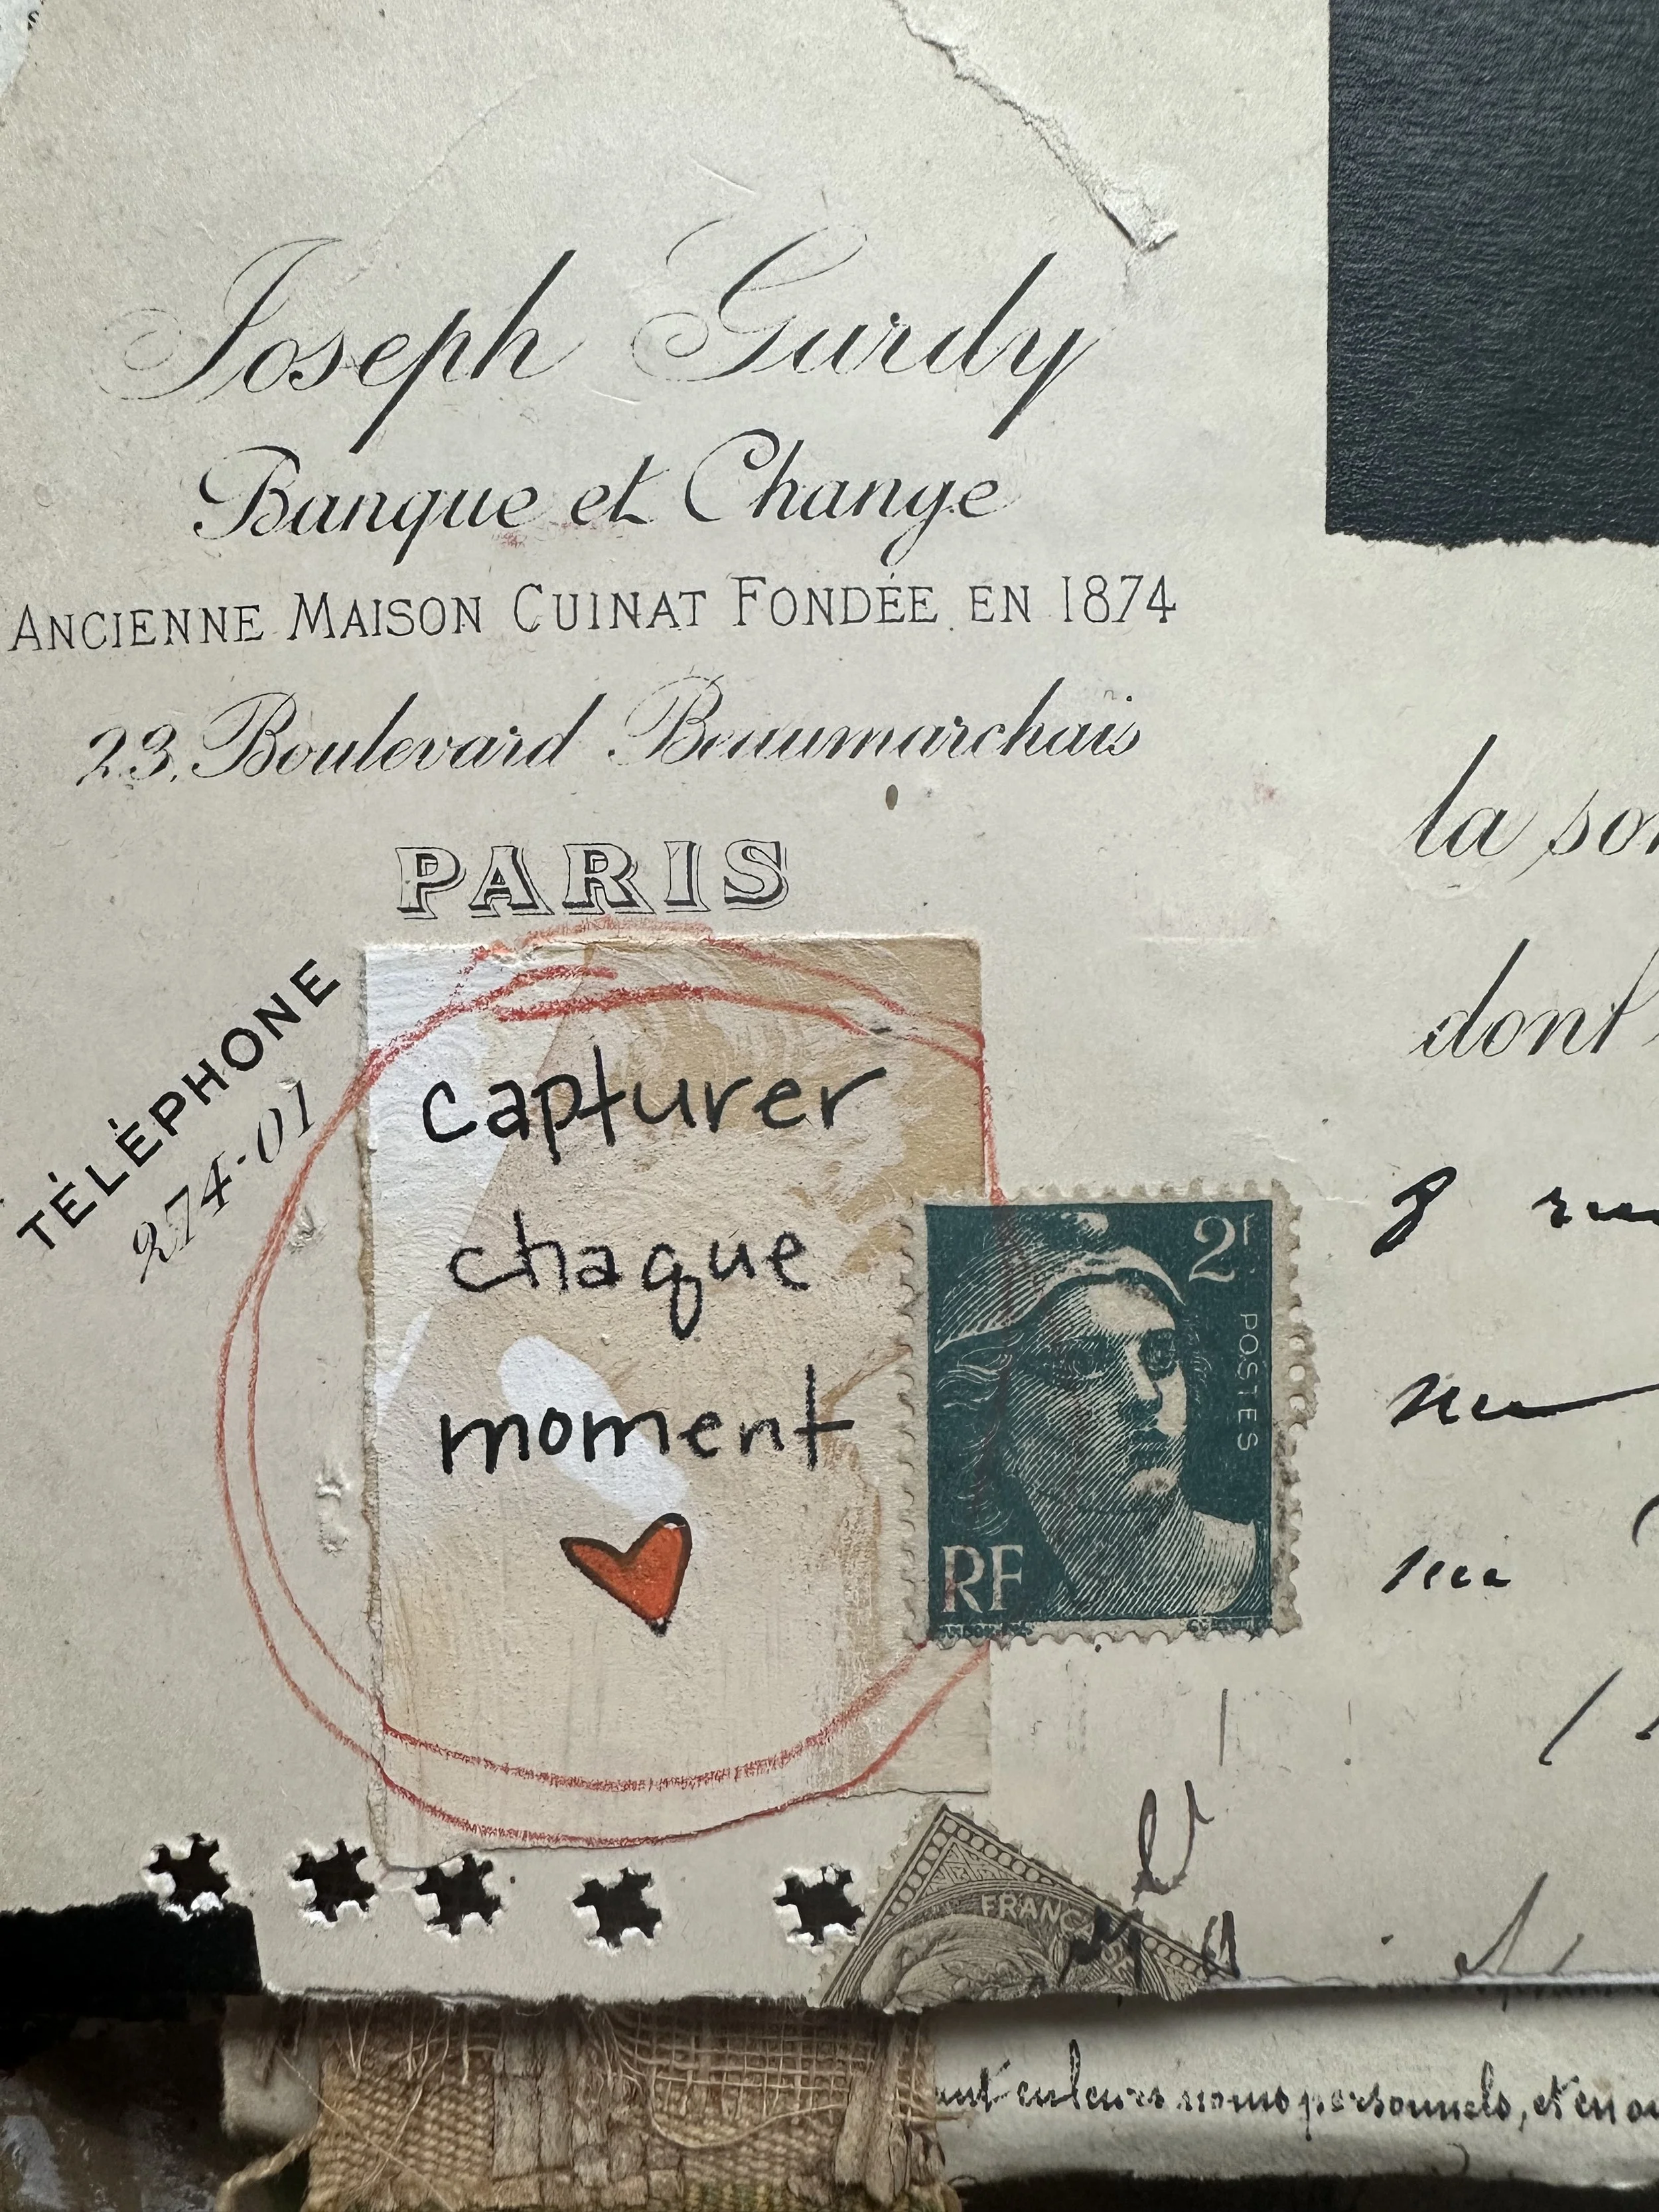 Joseph Gurdy
Banque et Change
ANCIENNE MAISON CUINAT FONDÉE EN 1874
23, Boulevard Beaumarchais
PARIS
TÉLÉPHONE
274-01
capturer
chaque
moment
2f
POSTES
RF
la
dont
8
FRANÇA
noms personnels, et en